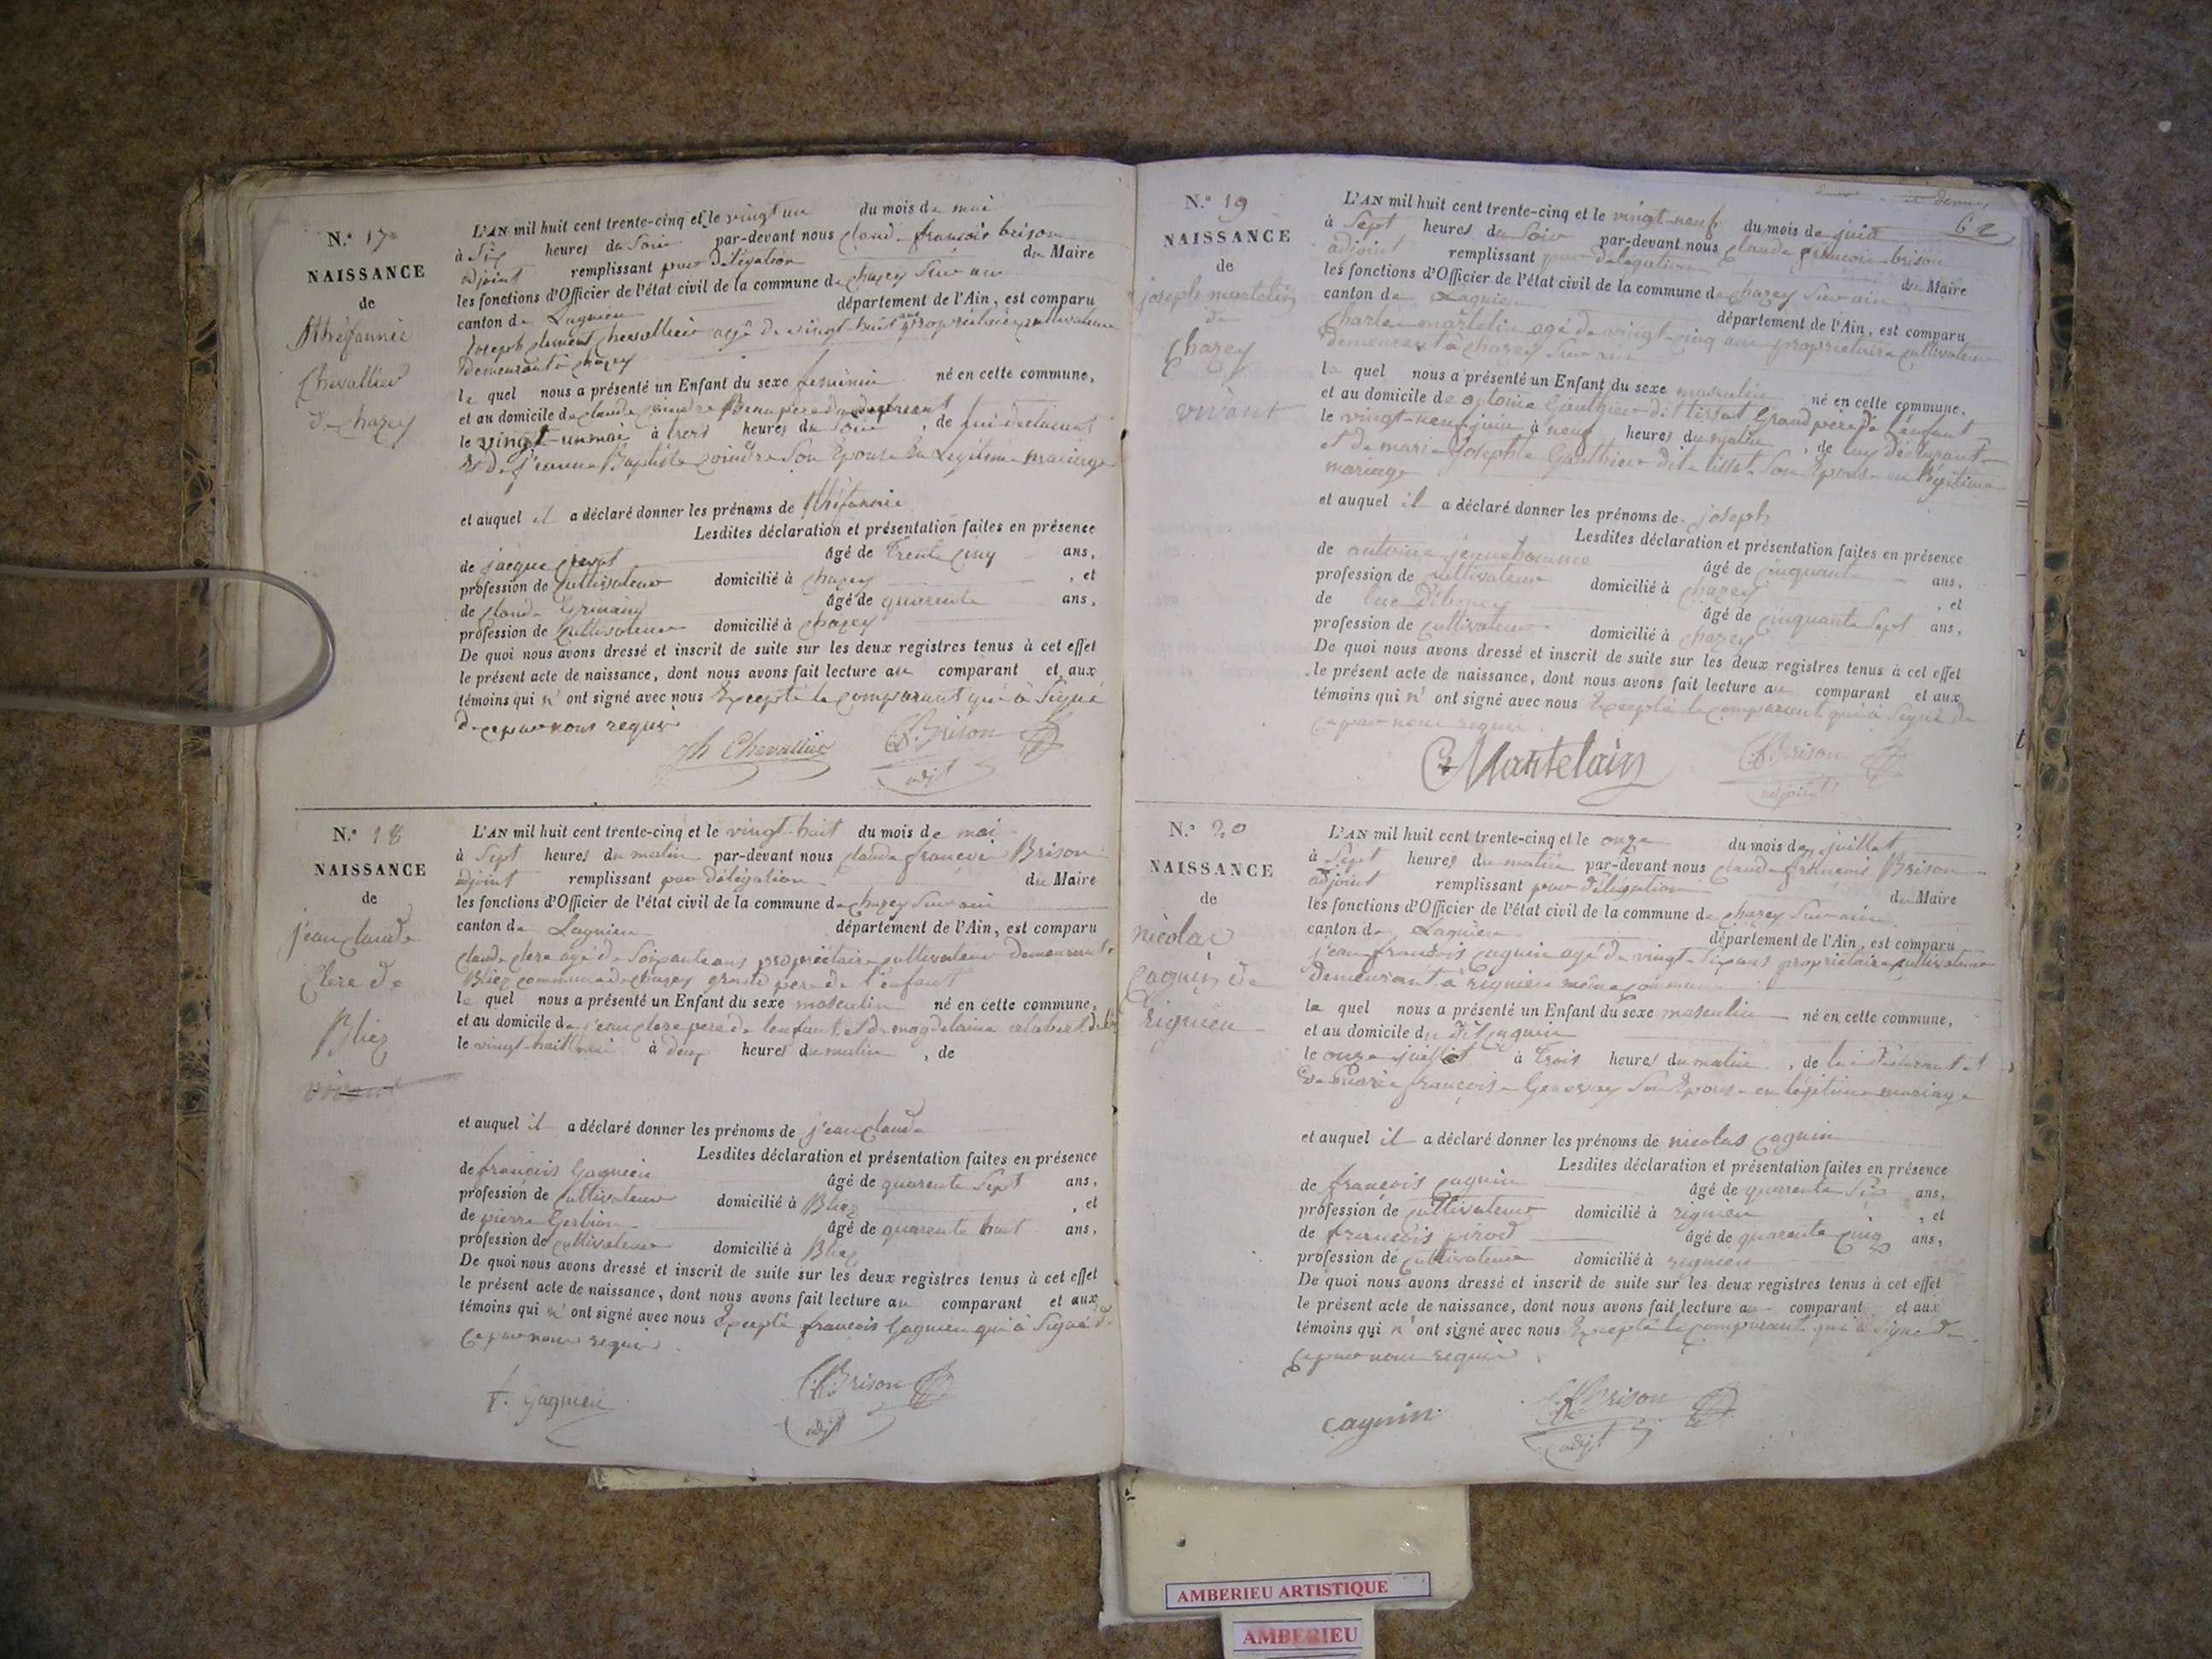 N.° 17
NAISSANCE
de
Chevallier
de chazey
L'AN mil huit cent trente-cinq et le vingt un du mois de mai
à Six heures du Soir par-devant nous claude françois brison
adjoint remplissant pour délégation du Maire
les fonctions d'Officier de l'état civil de la commune de chazey Sur ain
canton de Lagnieu département de l'Ain, est comparu
joseph clement chevallier agé de vingt huit ans propriétaire cultivateur
demeurant à chazey
le quel nous a présenté un Enfant du sexe feminin né en cette commune,
et au domicile de claude Beaupère du
le vingt-un mai à trois heures du Soir, de lui déclarant
et de jeanne Baptiste Son Epouse En Légitime mariage
et auquel il a déclaré donner les prénoms de
Lesdites déclaration et présentation faites en présence
de jacque âgé de trente cinq ans,
profession de cultivateur domicilié à chazey, et
de claude âgé de quarente ans,
profession de cultivateur domicilié à chazey
De quoi nous avons dressé et inscrit de suite sur les deux registres tenus à cet effet
le présent acte de naissance, dont nous avons fait lecture au comparant et aux
témoins qui n'ont signé avec nous Excepté le comparant qui à Signé
de ce par nous requis
jh Chevallier C.f.Brison
adjt
N.° 18
NAISSANCE
de
jean claude
clere de
Bliez
vivant
L'AN mil huit cent trente-cinq et le vingt-huit du mois de mai
à Sept heures du matin par-devant nous claude françois Brison
adjoint remplissant pour délégation du Maire
les fonctions d'Officier de l'état civil de la commune de chazey Sur ain
canton de Lagnieu département de l'Ain, est comparu
claude clere agé de Soixante ans propriétaire cultivateur demeurant à
Bliez commune de chazey grand pere de l'enfant
le quel nous a présenté un Enfant du sexe masculin né en cette commune,
et au domicile de jean clere pere de lenfant et de magdelaine
le vingt-huit mai à deux heures du matin, de
et auquel il a déclaré donner les prénoms de jean claude
Lesdites déclaration et présentation faites en présence
de françois Gagnieu âgé de quarente Sept ans,
profession de cultivateur domicilié à Bliez, et
de pierre Gerbion âgé de quarente huit ans,
profession de cultivateur domicilié à Bliez
De quoi nous avons dressé et inscrit de suite sur les deux registres tenus à cet effet
le présent acte de naissance, dont nous avons fait lecture au comparant et aux
témoins qui n'ont signé avec nous Excepté françois Gagnieu qui à Signé de
ce par nous requis
f. Gagnieu C.f.Brison
adjt
62
N.° 19
NAISSANCE
de
joseph martelin
de
Chazey
vivant
L'AN mil huit cent trente-cinq et le vingt-neuf du mois de juin
à Sept heures du Soir par-devant nous claude françois brison
adjoint remplissant pour délégation du Maire
les fonctions d'Officier de l'état civil de la commune de chazey Sur ain
canton de Lagnieu département de l'Ain, est comparu
Charle martelin agé de vingt-cinq ans propriétaire cultivateur
demeurant à chazey Sur ain
le quel nous a présenté un Enfant du sexe masculin né en cette commune,
et au domicile de antoine Gauthier dit tissot Grand pere de l'enfant
le vingt-neuf juin à neuf heures du matin, de luy déclarant
et de marie josephte Gauthier dite tissot Son Epouse en Légitime
mariage
et auquel il a déclaré donner les prénoms de joseph
Lesdites déclaration et présentation faites en présence
de antoine jeunehomme âgé de cinquante ans,
profession de cultivateur domicilié à chazey, et
de luc âgé de cinquante Sept ans,
profession de cultivateur domicilié à chazey
De quoi nous avons dressé et inscrit de suite sur les deux registres tenus à cet effet
le présent acte de naissance, dont nous avons fait lecture au comparant et aux
témoins qui n'ont signé avec nous Excepté le comparant qui à Signé de
ce par nous requis
C Martelain C.f.Brison
adjoint
N.° 20
NAISSANCE
de
nicolas
Cagnin de
rignieu
L'AN mil huit cent trente-cinq et le onze du mois de juillet
à Sept heures du matin par-devant nous claude françois Brison
adjoint remplissant pour délégation du Maire
les fonctions d'Officier de l'état civil de la commune de chazey Sur ain
canton de Lagnieu département de l'Ain, est comparu
jean françois cagnin agé de vingt-Six ans propriétaire cultivateur
demeurant à rignieu même commune
le quel nous a présenté un Enfant du sexe masculin né en cette commune,
et au domicile du dit cagnin
le onze juillet à trois heures du matin, de lui déclarant et
de Marie françoise Genevay Son Epouse en légitime mariage
et auquel il a déclaré donner les prénoms de nicolas cagnin
Lesdites déclaration et présentation faites en présence
de françois cagnin âgé de quarente Six ans,
profession de cultivateur domicilié à rignieu, et
de françois pirod âgé de quarente cinq ans,
profession de cultivateur domicilié à rignieu
De quoi nous avons dressé et inscrit de suite sur les deux registres tenus à cet effet
le présent acte de naissance, dont nous avons fait lecture au comparant et aux
témoins qui n'ont signé avec nous Excepté le comparant qui à signé de
ce par nous requis
cagnin C.f.Brison
adjt
AMBERIEU ARTISTIQUE
AMBERIEU